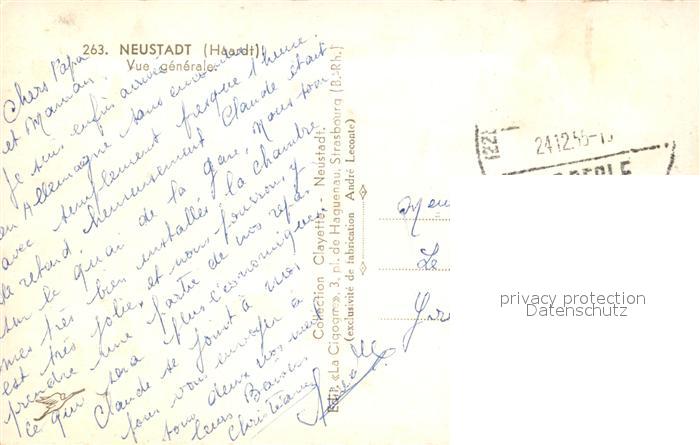 263. NEUSTADT (Haardt).
Vue générale.
Chers Papa
et Maman.
Je suis enfin arrivée
en Allemagne sans encombre
avec simplement presque 1 heure
de retard heureusement Claude était
sur le quai de la gare. Nous sommes
très bien installés, la chambre
est très jolie et nous pourrons y
prendre une partie de nos repas
ce qui sera plus économique,
Claude se joint à moi
pour vous envoyer à
tous deux nos meilleurs
Baisers
Christiane
Collection Clayette, - Neustadt.
Edit. «La Cigogne», 3, pl. de Haguenau, Strasbourg (B.-Rh.)
(exclusivité de fabrication André Leconte)
1221
24.12.55-1
Le
privacy protection
Datenschutz